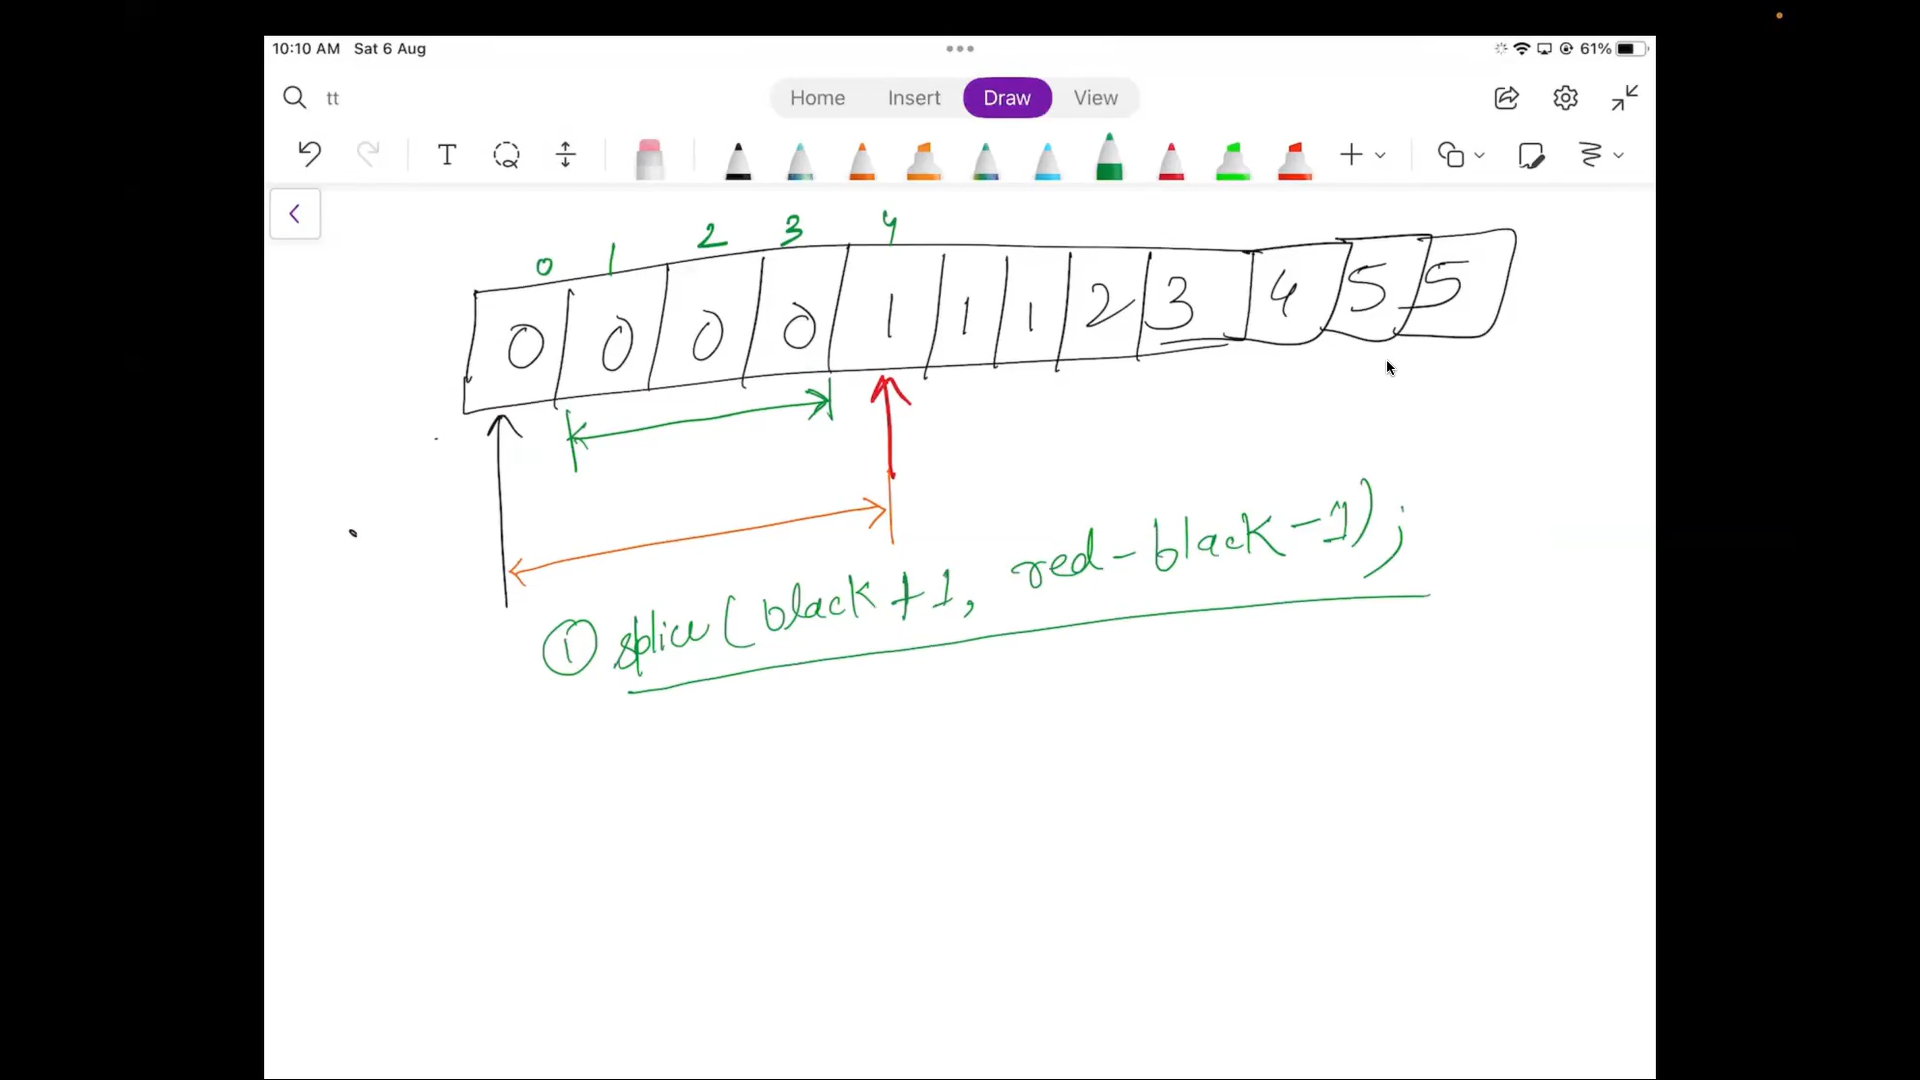 10:10 AM Sat 6 Aug 61%
tt Home Insert Draw View
T
0 1 2 3 4
0 0 0 0 1 1 1 2 3 4 5 5
① splice (black+1, red-black-1);